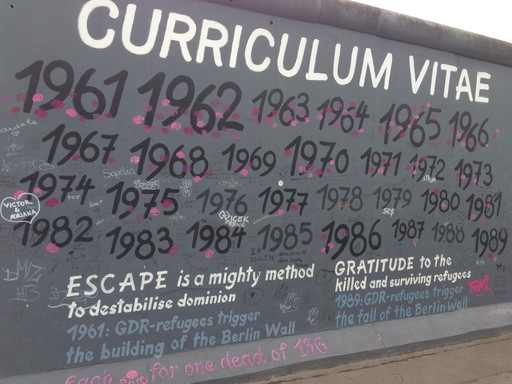 CURRICULUM VITAE
1961 1962 1963 1964 1965 1966
1967 1968 1969 1970 1971 1972 1973
1974 1975 1976 1977 1978 1979 1980 1981
1982 1983 1984 1985 1986 1987 1988 1989
VICTOR
&
ADRIANA
ESCAPE is a mighty method
to destabilise dominion
1961: GDR-refugees trigger
the building of the Berlin Wall
GRATITUDE to the
killed and surviving refugees
1989: GDR-refugees trigger
the fall of the Berlin Wall
Each for one dead of 136